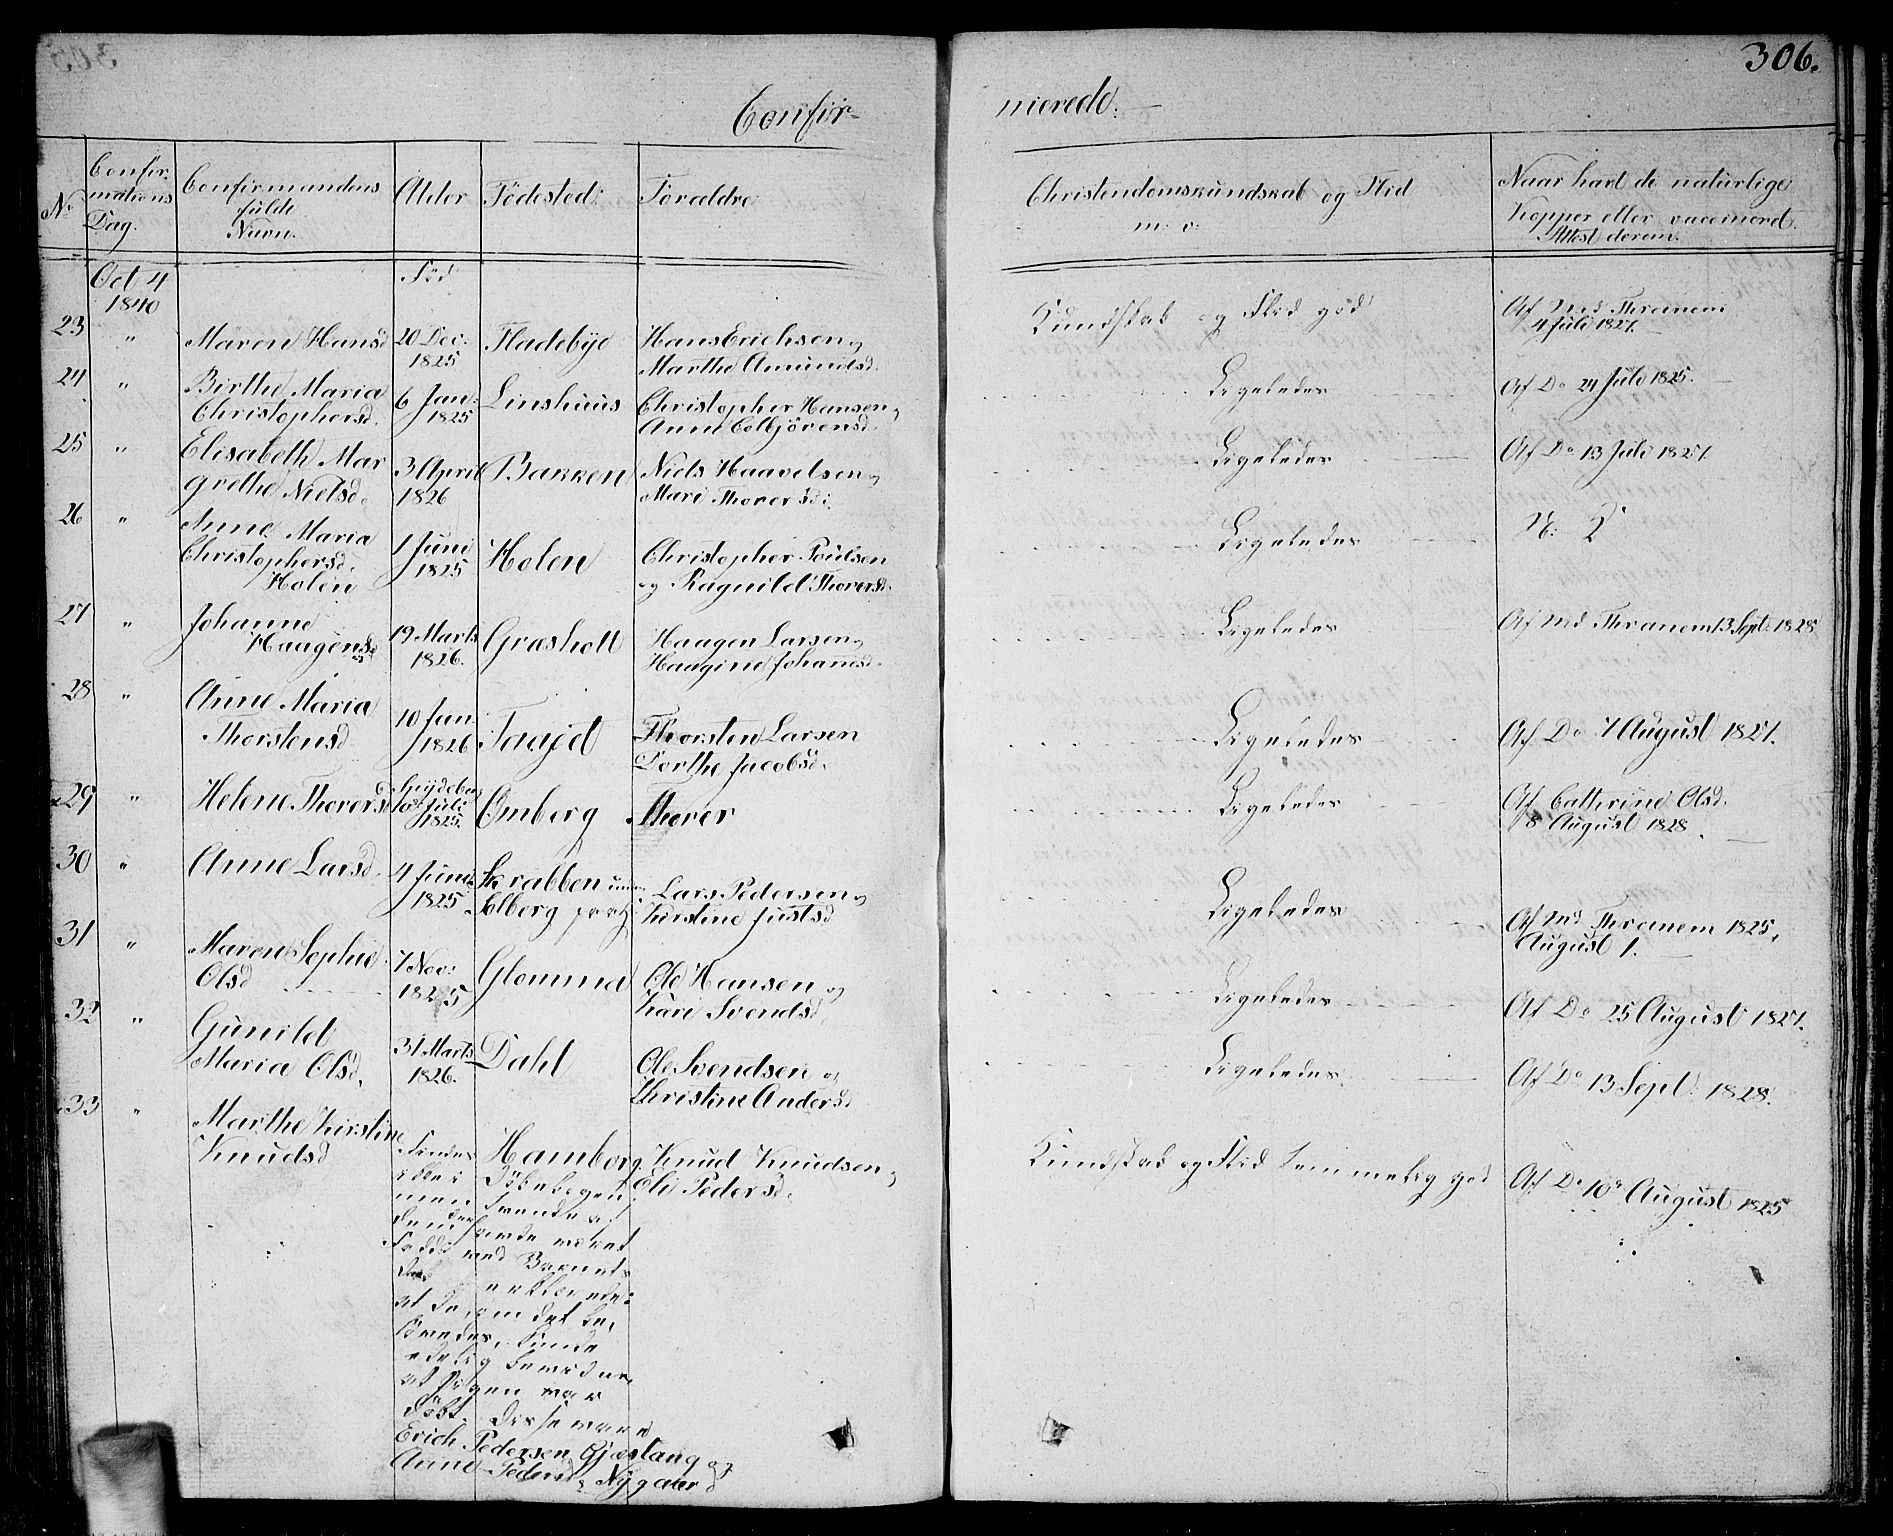 306.
Confir-
merede.
No
Confir-
mations
Dag.
Confirmandens
fulde
Navn.
Alder
Födested:
Forældre
Christendomskundskab og Flid
m: v:
Naar havt de naturlige
Kopper eller vaccinered.
Attest derom.
Oct 4
1840
Fød
23 " Maren Hansd 20 Dec: 1825 Fladebÿe Hans Erichsen og
Marthe Amundsd.
Kundskab og Flid god
Af Md Thranem
4 Juli 1827.
24 " Birthe Maria
Christophersd. 6 Jan: 1825 Linshuus Christopher Hansen og
Anne Colbjörensd.
Ligeledes
Af Do 24 Juli 1825.
25 " Elisabeth Mar
grethe Nielsd. 3 April 1826 Bakken Niels Haavelsen og
Mari Thorersd:
Ligeledes
Af Do 13 Juli 1827.
26 " Anne Maria
Christophersd.
Holen 1 Juni 1825 Holen Christopher Poulsen
og Ragnild Thorersd.
Ligeledes
27 " Johanne
Haagensd 19 Marts 1826. Græsholt Haagen Larsen og
Haagine Johannsd.
Ligeledes
Af Md Thranem 13 Sept: 1828
28 " Anne Maria
Thorstensd 10 Jan. 1826 Taajet Thorsten Larsen
Dorthe Jacobsd.
Ligeledes
Af Do 7 August 1827.
29 " Helene Thorersd 10 Juli 1825. Omborg Thorer
Ligeledes
Af Cathrine Olsd.
8 August 1828.
30 " Anne Larsd. 4 Juni 1825 Skrabben under
Solberg Lars Pedersen og
Kirstine Justsd
Ligeledes
Af Md Thranem 1825,
August 1.
31 " Maren Sophie
Olsd 7 Nov: 1825 Glomma Ole Hansen og
Kari Svendsd.
Ligeledes
Af Do 25 August 1827.
32 " Gunild
Maria Olsd. 31 Marts 1826. Dahl Ole Svendsen og
Christine Andersd
Ligeledes
Af Do 13 Sept: 1828.
33 " Marthe Kirstine
Knudsd Findes Hamborg Knud Knudsen og
Eli Pedersd.
Kundskab og Flid temmelig god
Af Do 10de August 1825
ikke i Döbebogen;
men
havde været
Fadde ved Barnets
Daab erklærede:
at de, om det be-
kunde
edelig bevidne,
at Pigen var
döbt. Disse vare
Erich Pedersen Gjæstang og
Anne Pedersd Nÿgaard